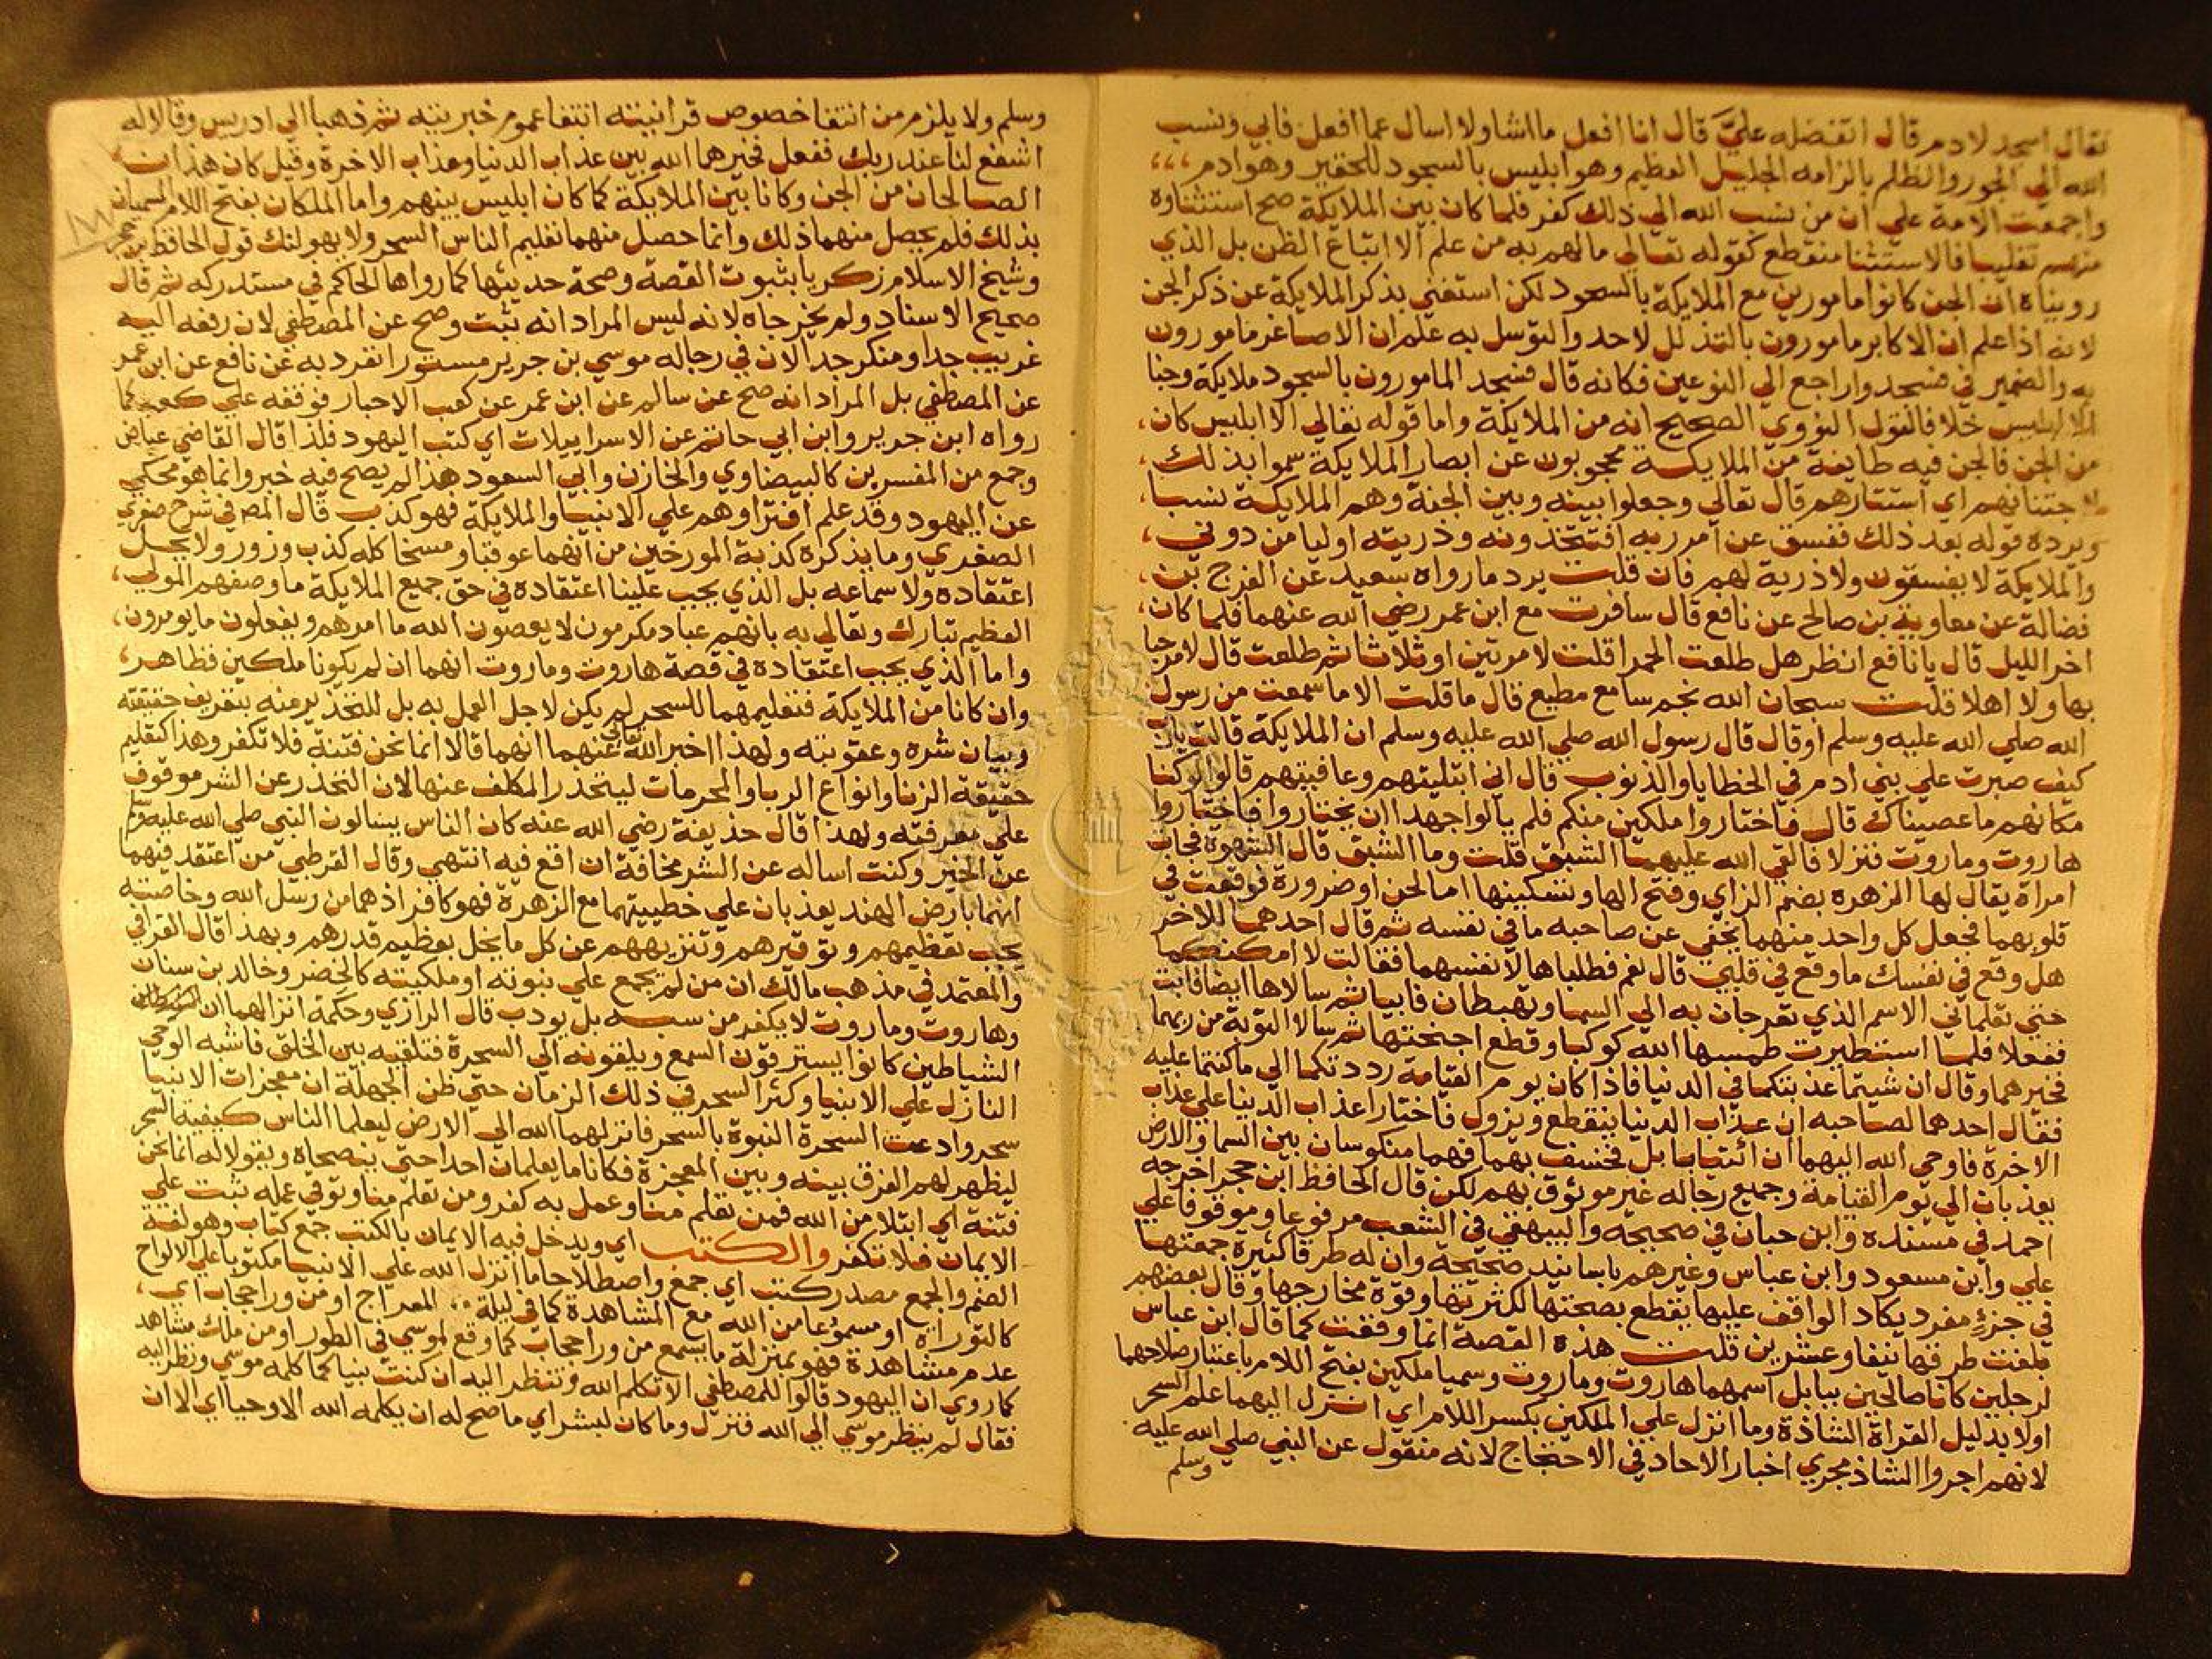 فقال اسجد لادم قال اتفضله علي قال انا افعل ما اشا ولا اسال عما افعل فابي ونسب
الله الي الجور والظلم بالزامه الجليل العظيم وهو ابليس بالسجود للحقير وهو ادم
واجمعت الامة علي ان من نسب الله الي ذلك كفر فلما كان بين الملايكة صح استثناوه
منهم تغليبا فالاستثنا منقطع كقوله تعالي ما لهم به من علم الا اتباع الظن بل الذي
رويناه ان الجن كانوا مامورين مع الملايكة بالسجود لكن استغني بذكر الملايكة عن ذكر الجن
لانه اذا علم ان الاكابر مامورون بالتذلل لاحد والتوسل به علم ان الاصاغر مامورون
به والضمير في فسجدوا راجع الي النوعين فكانه قال فسجد المامورون بالسجود ملايكة وجنا
الا ابليس خلافا لقول النووي الصحيح انه من الملايكة واما قوله تعالي الا ابليس كان
من الجن فالجن فيه طايفة من الملايكة محجوبون عن ابصار الملايكة سموا بذلك
لاجتنانهم اي استتارهم قال تعالي وجعلوا بينه وبين الجنة وهم الملايكة نسبا
ويرده قوله بعد ذلك ففسق عن امر ربه افتتخذونه وذريته اوليا من دوني
والملايكة لا يفسقون ولا ذرية لهم فان قلت يرد ما رواه سعيد عن الفرج بن
فضالة عن معاوية بن صالح عن نافع قال سافرت مع ابن عمر رضي الله عنهما فلما كان
اخر الليل قال يا نافع انظر هل طلعت الحمرا قلت لا مرتين او ثلاثا ثم طلعت قال لا مرحبا
بها ولا اهلا قلت سبحان الله نجم سامع مطيع قال ما قلت الا ما سمعت من رسول
الله صلي الله عليه وسلم او قال قال رسول الله صلي الله عليه وسلم ان الملايكة قالت يارب
كيف صبرت علي بني ادم في الخطايا والذنوب قال اني ابتليتهم وعافيتهم قالوا لو كنا
مكانهم ما عصيناك قال فاختاروا ملكين منكم فلم يالوا جهدا ان يختاروا فاختاروا
هاروت وماروت فنزلا فالقي الله عليهما الشبق قلت وما الشبق قال الشهوة فجات
امراة يقال لها الزهره بضم الزاي وفتح الها وتسكينها اما لحن او ضرورة فوقعت في
قلوبهما فجعل كل واحد منهما يخفي عن صاحبه ما في نفسه ثم قال احدهما للاخر
هل وقع في نفسك ما وقع في قلبي قال نعم فطلباها لانفسهما فقالت لا امكنكما
حتي تعلماني الاسم الذي تعرجان به الي السما وتهبطان فابيا ثم سالاها ايضا فابت
ففعلا فلما استطيرت طمسها الله كوكبا وقطع اجنحتها ثم سالا التوبة من ربهما
فخيرهما وقال ان شيتما عذبتكما في الدنيا فاذا كان يوم القيامة رددتكما الي ما كنتما عليه
فقال احدهما لصاحبه ان عذاب الدنيا ينقطع ويزول فاختارا عذاب الدنيا علي عذاب
الاخرة فاوحي الله اليهما ان ائتيا بابل فخسف بهما فهما منكوسان بين السما والارض
يعذبان الي يوم القيامة وجميع رجاله غير موثوق بهم لكن قال الحافظ ابن حجر اخرجه
احمد في مسنده وابن حبان في صحيحه والبيهقي في الشعب مرفوعا وموقوفا علي
علي وابن مسعود وابن عباس وغيرهم باسانيد صحيحة وان له طرقا كثيرة جمعتها
في جزء مفرد يكاد الواقف عليها يقطع بصحتها لكثرتها وقوة مخارجها وقال بعضهم
بلغت طرقها نيفا وعشرين قلت هذه القصة انما وقعت كما قال ابن عباس
لرجلين كانا صالحين ببابل اسمهما هاروت وماروت وسميا ملكين بفتح اللام باعتبار صلاحهما
اولا بدليل القراة الشاذة وما انزل علي الملكين بكسر اللام اي انزل اليهما علم السحر
لانهم اجروا الشاذ مجري اخبار الاحاد في الاحتجاج لانه منقول عن النبي صلي الله عليه
وسلم
وسلم ولا يلزم من انتفا خصوص قرانيته انتفا عموم خبريته ثم ذهبا الي ادريس وقالا له
اشفع لنا عند ربك ففعل فخيرهما الله بين عذاب الدنيا وعذاب الاخرة وقيل كان هذان
الصالحان من الجن وكانا بين الملايكة كما كان ابليس بينهم واما الملكان بفتح اللام المسميان
بذلك فلم يحصل منهما ذلك وانما حصل منهما تعليم الناس السحر ولا يهولنك قول الحافظ بن حجر
وشيخ الاسلام زكريا بثبوت القصة وصحة حديثها كما رواها الحاكم في مستدركه ثم قال
صحيح الاسناد ولم يخرجاه لانه ليس المراد انه ثبت وصح عن المصطفي لان رفعه اليه
غريب جدا ومنكر جدا لان في رجاله موسي بن جرير مستورا انفرد به عن نافع عن ابن عمر
عن المصطفي بل المراد انه صح عن سالم عن ابن عمر عن كعب الاحبار فوقفه علي كعب كما
رواه ابن جرير وابن ابي حاتم عن الاسراييلات اي كتب اليهود فلذا قال القاضي عياض
وجمع من المفسرين كالبيضاوي والخازن وابي السعود هذا لم يصح فيه خبر وانما هو محكي
عن اليهود وقد علم افتراوهم علي الانبيا والملايكة فهو كذب قال المص في شرح صغري
الصغري وما يذكره كذبة المورخين من انهما عوقبا ومسخا كله كذب وزور ولا يحل
اعتقاده ولا سماعه بل الذي يجب علينا اعتقاده في حق جميع الملايكة ما وصفهم المولي
العظيم تبارك وتعالي به بانهم عباد مكرمون لا يعصون الله ما امرهم ويفعلون ما يومرون
واما الذي يجب اعتقاده في قصة هاروت وماروت انهما ان لم يكونا ملكين فظاهر
وان كانا من الملايكة فتعليمهما للسحر لم يكن لاجل العمل به بل للتحذير منه بتعريف حقيقته
وبيان شره وعقوبته ولهذا اخبر الله تعالي عنهما انهما قالا انما نحن فتنة فلا تكفر وهذا كتعليم
حقيقة الزنا وانواع الربا والمحرمات ليتحذر المكلف عنها لان التحذر عن الشر موقوف
علي معرفته ولهذا قال حذيفة رضي الله عنه كان الناس يسالون النبي صلي الله عليه وسلم
عن الخير وكنت اساله عن الشر مخافة ان اقع فيه انتهي وقال القرطبي من اعتقد فيهما
انهما بارض الهند يعذبان علي خطييتهما مع الزهرة فهو كافر اذ هما من رسل الله وخاصته
يجب تعظيمهم وتوقيرهم وتنزيههم عن كل ما يخل بعظيم قدرهم وبهذا قال القرافي
والمعتمد في مذهب مالك ان من لم يجمع علي نبوته او ملكيته كالخضر وخالد بن سنان
وهاروت وماروت لا يكفر من سبه بل يودب قال الرازي وحكمة انزالهما ان
الشياطين كانوا يسترقون السمع ويلقونه الي السحرة فتلقيه بين الخلق فاشبه الوحي
النازل علي الانبيا وكثر السحر في ذلك الزمان حتي ظن الجهلة ان معجزات الانبيا
سحر وادعت السحرة النبوة بالسحر فانزلهما الله الي الارض ليعلما الناس كيفية السحر
ليظهر لهم الفرق بينه وبين المعجزة فكانا ما يعلمان احدا حتي ينصحاه ويقولا له انما نحن
فتنة اي ابتلا من الله فمن تعلم منا وعمل به كفر ومن تعلم منا وتوقي عمله ثبت علي
الايمان فلا تكفر والكتب اي ويدخل فيه الايمان بالكتب جمع كتاب وهو لغة
الضم والجمع مصدر كتب اي جمع واصطلاحا ما انزل الله علي الانبيا مكتوبا علي الالواح
كالتوراة او مسموعا من الله مع المشاهدة كما في ليلة المعراج او من ورا حجاب اي
عدم مشاهدة فهو بمنزلة ما يسمع من ورا حجاب كما وقع لموسي في الطور او من ملك مشاهد
كما روي ان اليهود قالوا للمصطفي الا تكلم الله وتنظر اليه ان كنت نبيا كما كلمه موسي ونظر اليه
فقال لم ينظر موسي الي الله فنزل وما كان لبشر اي ما صح له ان يكلمه الله الا وحيا اي الا ان